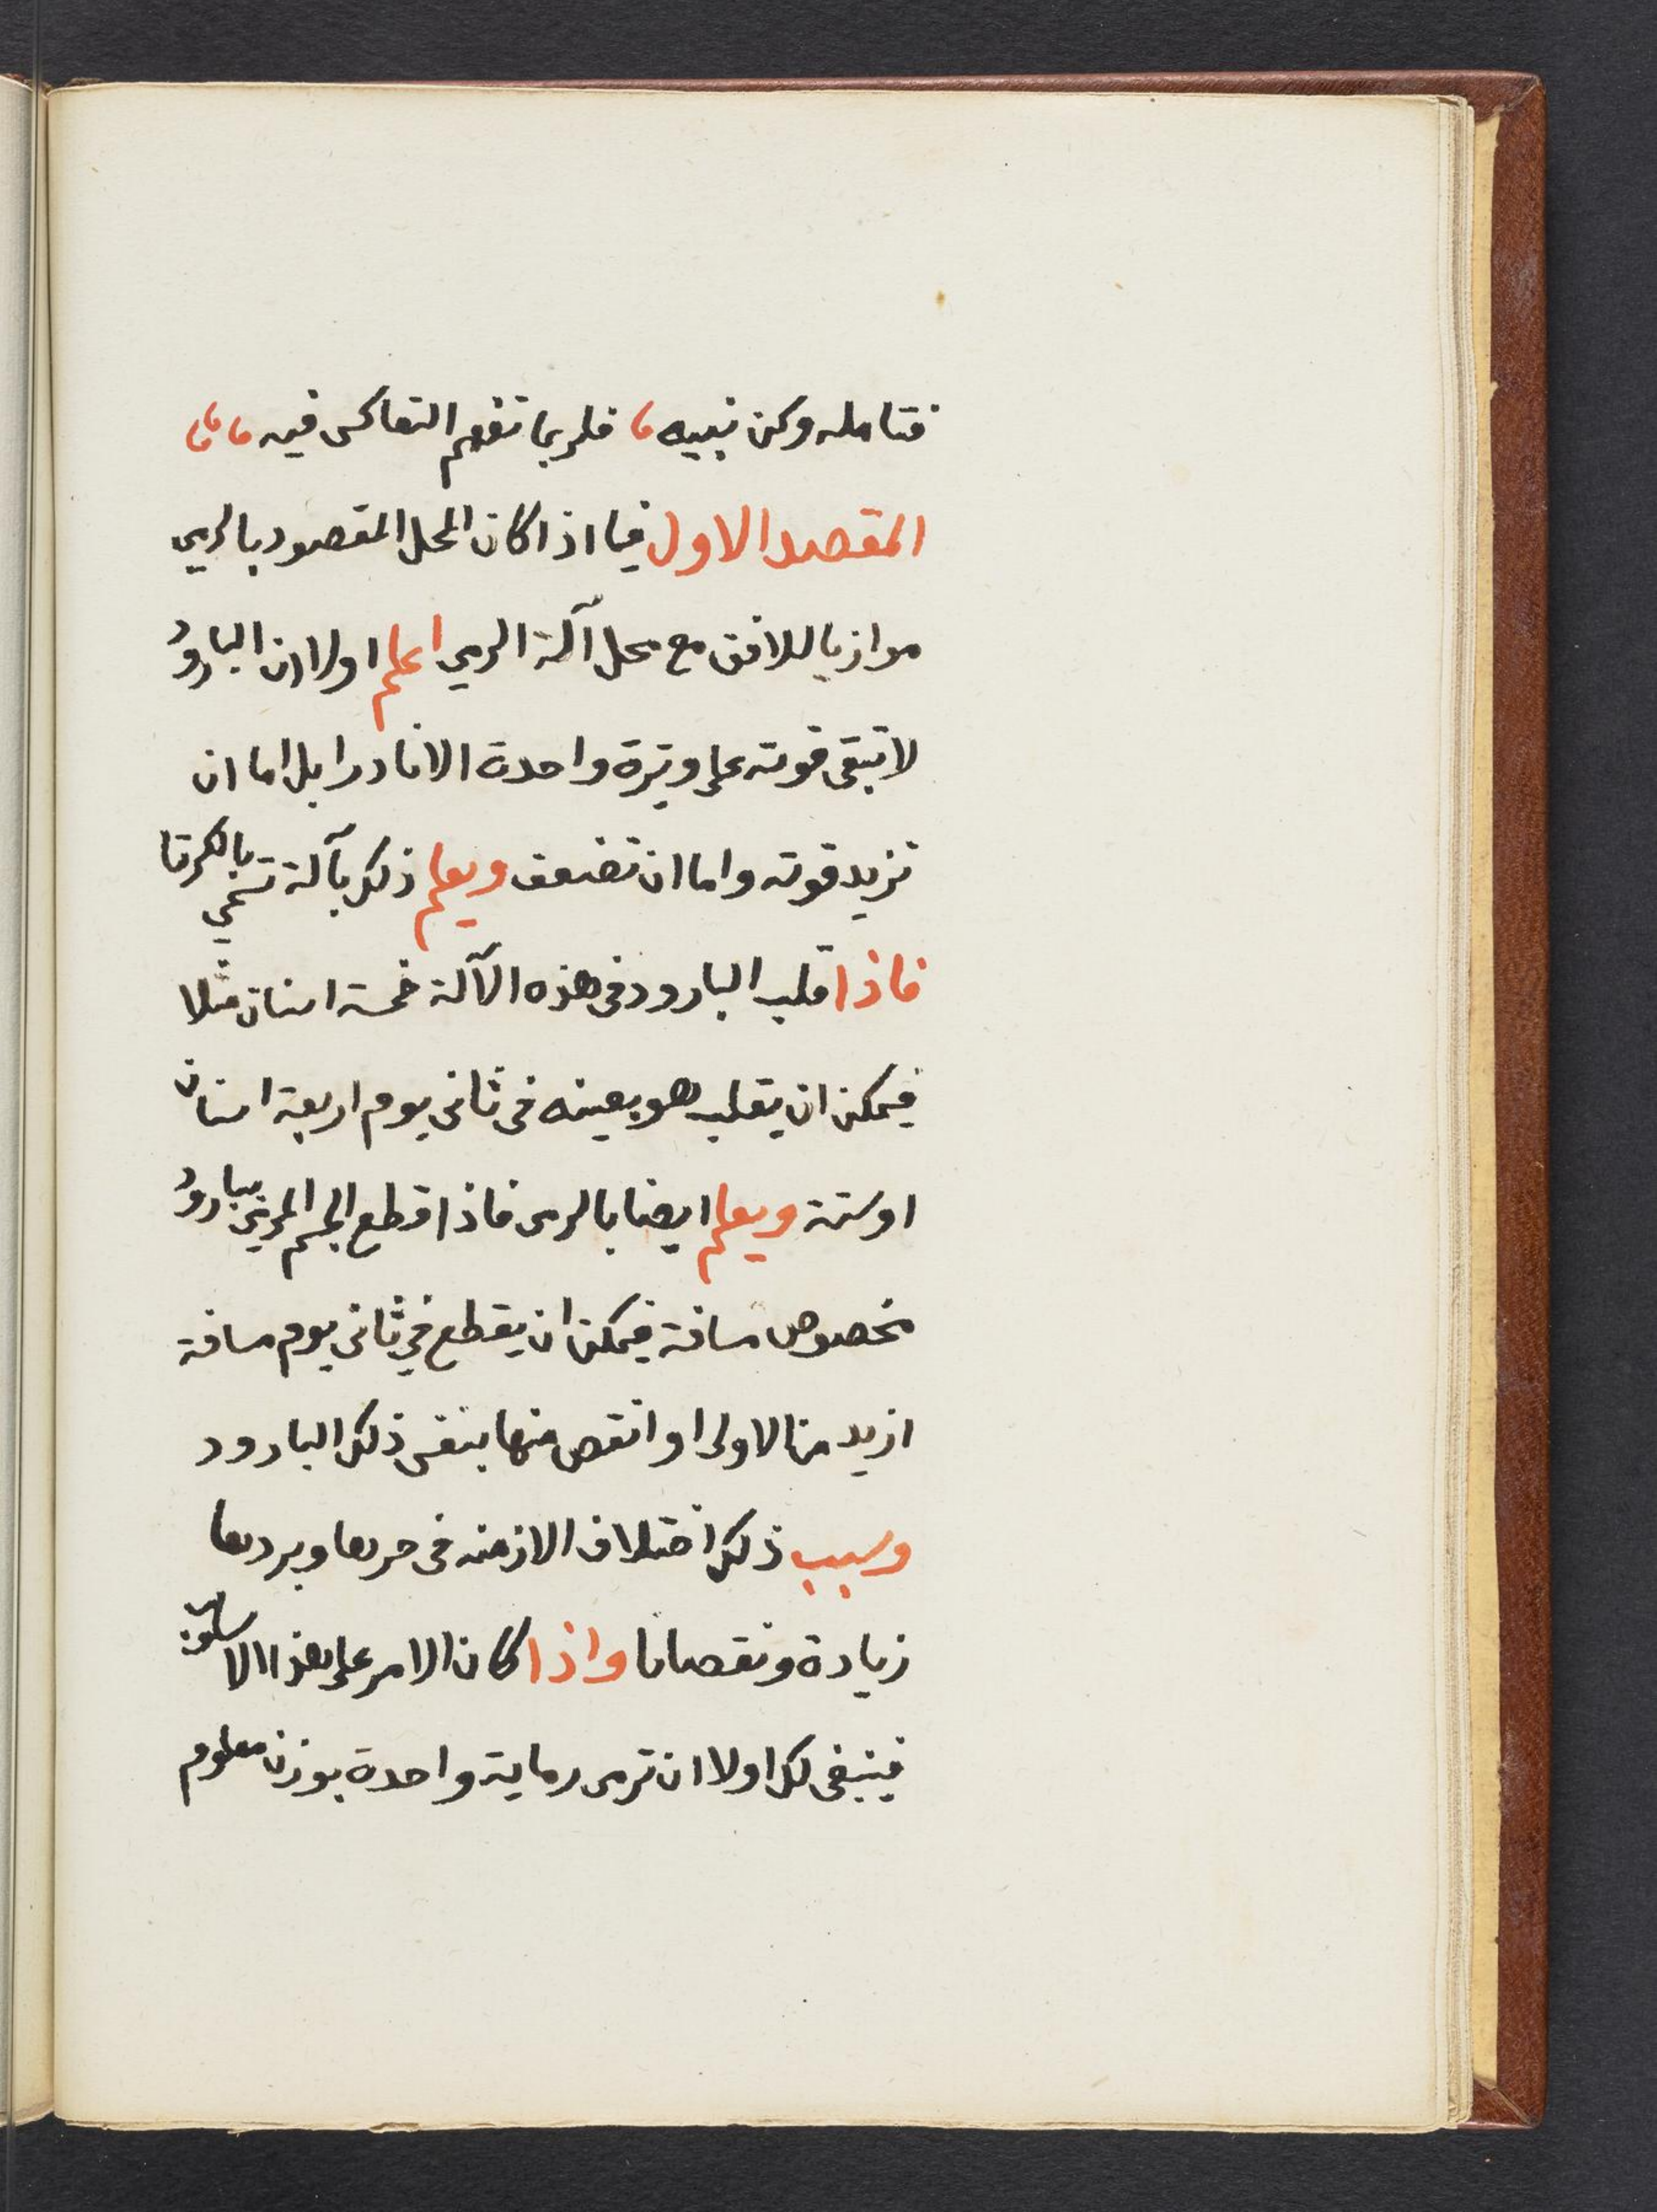 فتامله وكن نبيه، فلربما تفهم التعاكس فيه
المقصد الاول فيما اذا كان المحل المقصود بالرمي
موازيا للافق مع محل آلة الرمي اعلم اولا ان البارود
لا تبقى قوته على وتيرة واحدة الا نادرا بل اما ان
تزيد قوته واما ان تضعف ويعلم ذلك بآلة تسمى بالكرتا
فاذا قلب البارود في هذه الآلة خمسة اسنان مثلا
فيمكن ان يقلب هو بعينه في ثاني يوم اربعة اسنان
او ستة ويعلم ايضا بالرمى فاذا قطع الجسم المرمي ببارود
مخصوص مسافة فيمكن ان يقطع في ثاني يوم مسافة
ازيد من الاولى او انقص منها بنفس ذلك البارود
وسبب ذلك اختلاف الازمنه في حرها وبردها
زيادة ونقصانا واذا كان الامر على هذا الاسلوب
فينبغي لك اولا ان ترمى رماية واحدة بوزن معلوم